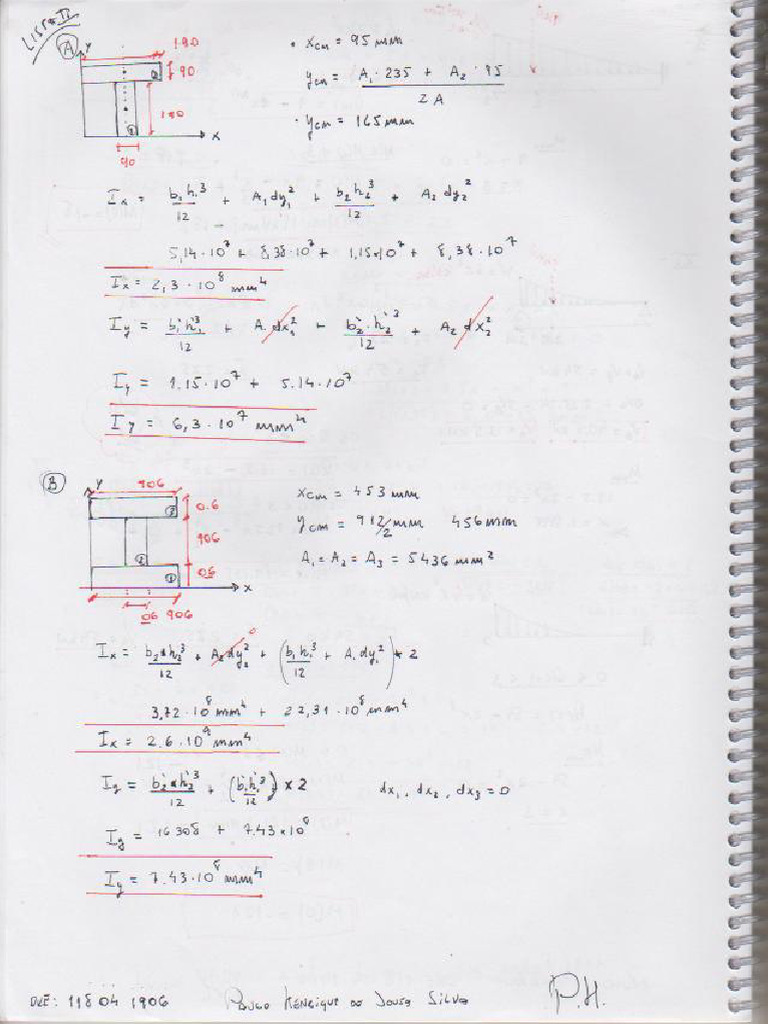 LISTA II
A
y
190
90
190
x
90
• xcm = 95 mm
ycm = A1 · 235 + A2 · 95
2A
• ycm = 165 mm
Ix = b1 h1³ + A1 dy1² + b2 h2³ + A2 dy2²
12 12
5,14·10⁷ + 8,38·10⁷ + 1,15·10⁷ + 8,38·10⁷
Ix = 2,3·10⁸ mm⁴
Iy = b1 h1³ + A1 dx1² + b2 h2³ + A2 dx2²
12 12
Iy = 1.15·10⁷ + 5.14·10⁷
Iy = 6,3·10⁷ mm⁴
B
y
906
0.6
906
06
x
06 906
xcm = 453 mm
ycm = 912/2 mm 456 mm
A1 = A2 = A3 = 5436 mm²
Ix = b2 h2³ + A2 dy2² 0 + (b1 h1³ + A1 dy1²) * 2
12 12
3,72·10⁸ mm⁴ + 22,31·10⁸ mm⁴
Ix = 2.6·10⁹ mm⁴
Iy = b2 h2³ + (b1 h1³) × 2
12 12
dx1, dx2, dx3 = 0
Iy = 16308 + 7.43×10⁸
Iy = 7.43·10⁸ mm⁴
DRE: 118 04 1906 Paulo Henrique de Sousa Silva P.H.